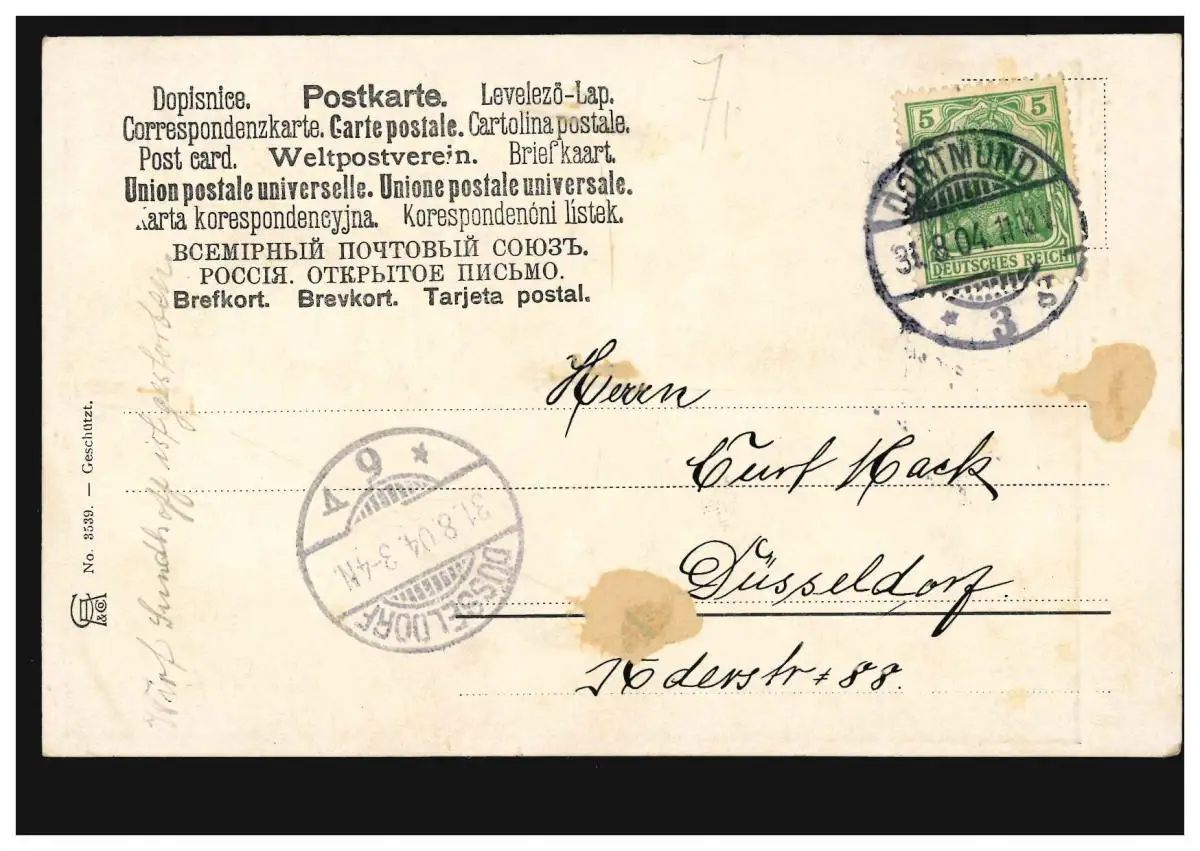 7
Dopisnice. Postkarte. Levelező-Lap.
Correspondenzkarte. Carte postale. Cartolina postale.
Post card. Weltpostverein. Briefkaart.
Union postale universelle. Unione postale universale.
Karta korespondencyjna. Korespondenčni listek.
ВСЕМІРНЫЙ ПОЧТОВЫЙ СОЮЗЪ.
РОССІЯ. ОТКРЫТОЕ ПИСЬМО.
Brefkort. Brevkort. Tarjeta postal.
5 5
DEUTSCHES REICH
DORTMUND
31.8.04.11-12V
* 3
Herrn
Curt Hack
Düsseldorf.
str 88.
6 *
31.8.04. 3-4N.
DÜSSELDORF
No. 3539. — Geschützt.
&Co
ist gestorben